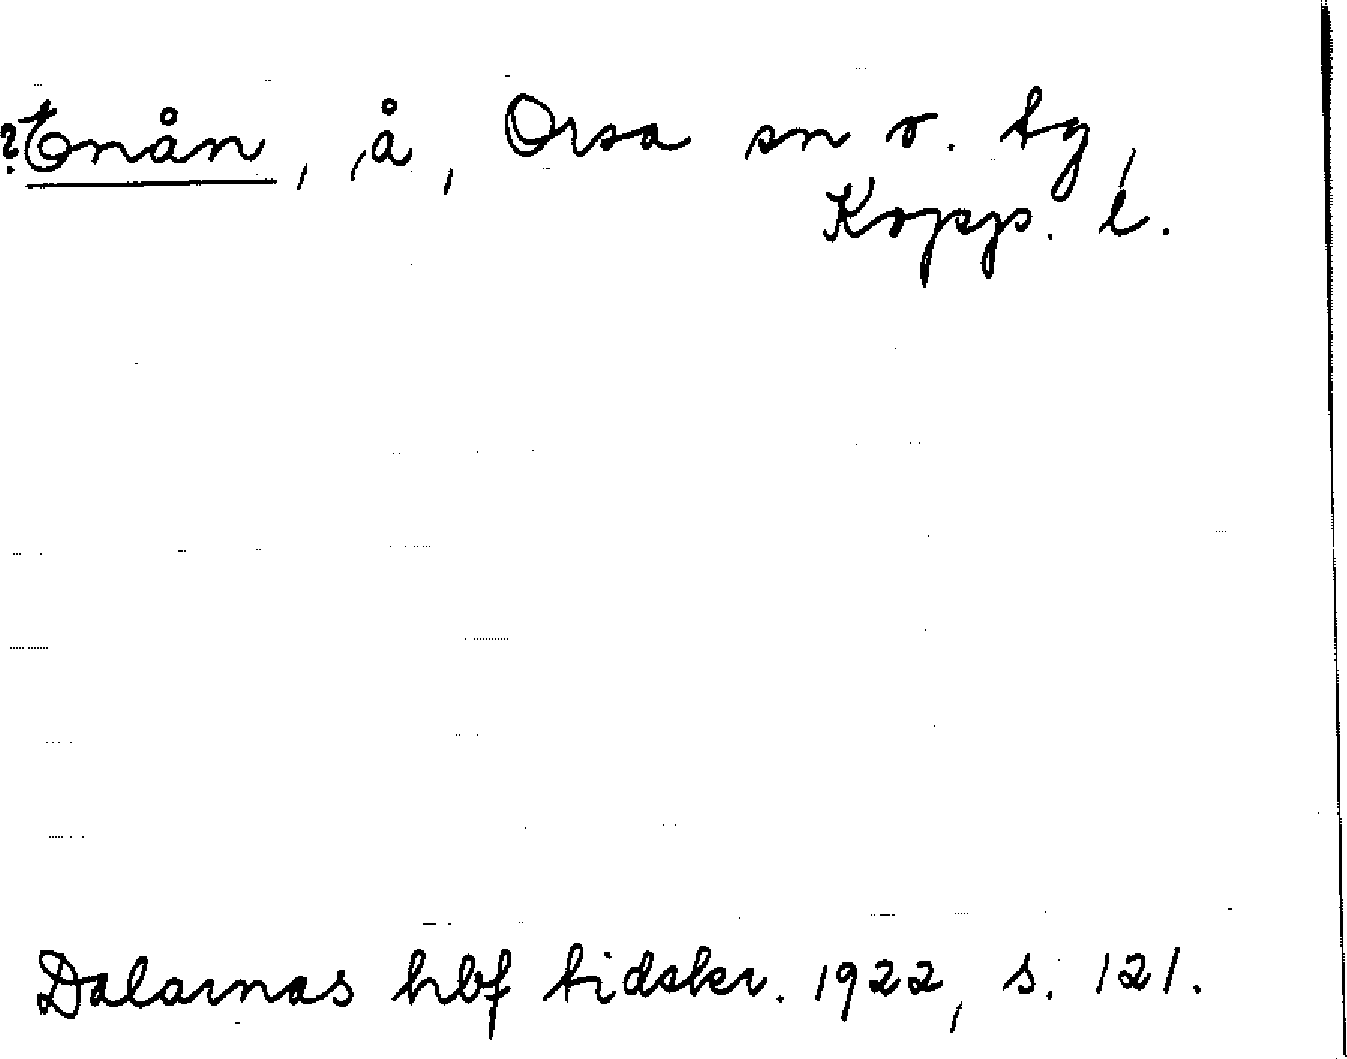 ?Enån, å, Orsa sn o. tg,
Kopp. l.
Dalarnas hbf tidskr. 1922, s. 121.